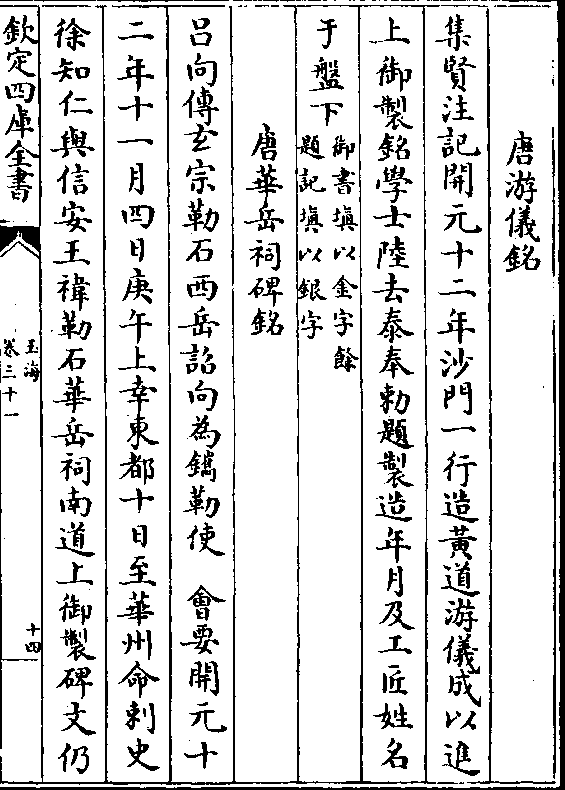 唐游儀銘
集賢注記開元十二年沙門一行造黃道游儀成以進
上御製銘學士陸去泰奉勅題製造年月及工匠姓名
于盤下御書塡以金字餘
題記塡以銀字
唐華岳祠碑銘
呂向傳玄宗勒石西岳詔向為鐫勒使 會要開元十
二年十一月四日庚午上幸東都十日至華州命刺史
徐知仁與信安王禕勒石華岳祠南道上御製碑文仍
欽定四庫全書
玉海
卷三十一
十四